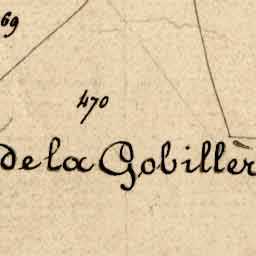 69
470
de la Gobillèr